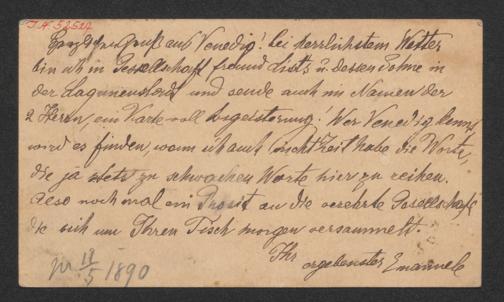 I.N. 52517
Gruß aus Venedig! bei herrlichstem Wetter
bin ich in Gesellschaft freund Lists u. dessen Sohne in
der Lagunenstadt und sende auch im Namen der
2 Herrn, ein Karte voll Begeisterung! Wer Venedig kennt
wird es finden, wenn ich auch nicht Zeit habe die Worte,
die ja stets zu schwachen Worte hier zu reihen.
Also nochmal ein Prosit an die verehrte Gesellschaft
die sich um Ihren Tisch morgen versammelt.
Ihr
ergebenster Emanuele
19/5 1890